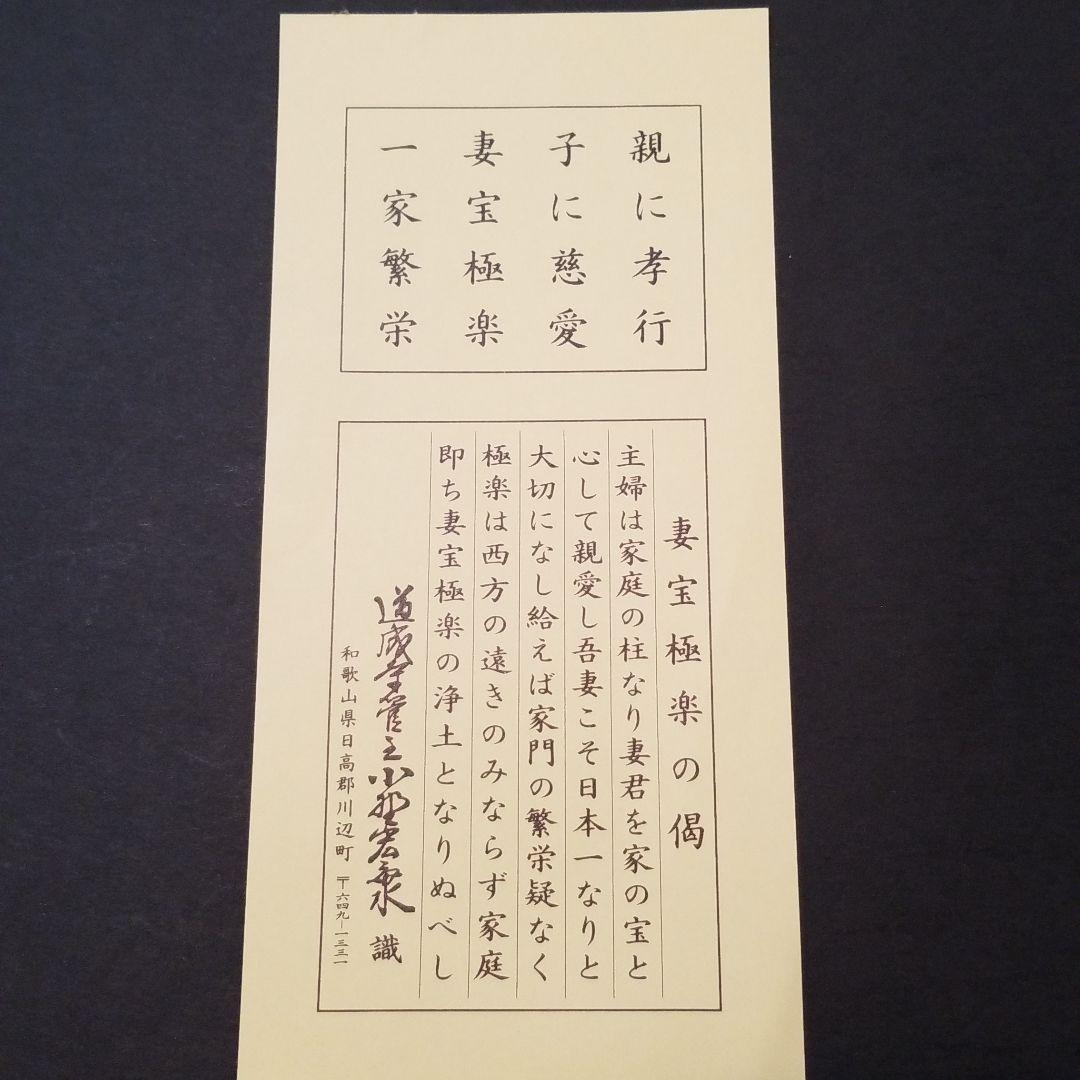 親に孝行
子に慈愛
妻宝極楽
一家繁栄
妻宝極楽の偈
主婦は家庭の柱なり妻君を家の宝と
心して親愛し吾妻こそ日本一なりと
大切になし給えば家門の繁栄疑なく
極楽は西方の遠きのみならず家庭
即ち妻宝極楽の浄土となりぬべし
道成寺管主小野宏海 識
和歌山県日高郡川辺町 〒六四九－一三三一